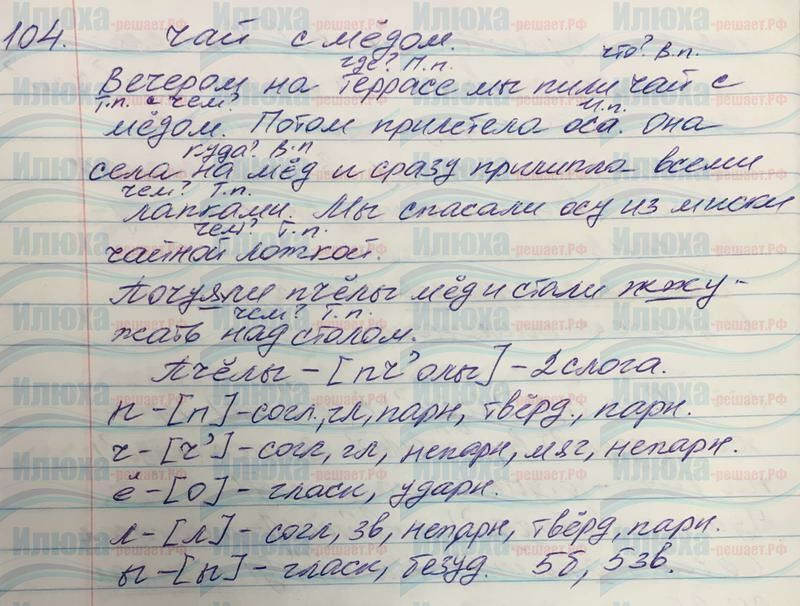 104. Чай с мёдом.
где? П.п. что? В.п.
Вечером на террасе мы пили чай с
Т.п. с чем? И.п.
мёдом. Потом прилетела оса. Она
куда? В.п
села на мёд и сразу прилипла всеми
чем? Т.п.
лапками. Мы спасали осу из миски
чем? Т.п.
чайной ложкой.
Почуяли пчёлы мёд и стали жжу-
чем? Т.п.
жать над столом.
Пчёлы – [пч'олы] – 2 слога.
п – [п] – согл, гл, парн, твёрд., парн.
ч – [ч'] – согл, гл, непарн, мяг, непарн.
ё – [о] – гласн, ударн.
л – [л] – согл, зв, непарн, твёрд, парн.
ы – [ы] – гласн, безуд. 5б, 5зв.